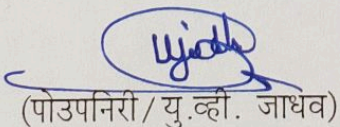 (पोउपनिरी/ यु.व्ही. जाधव)